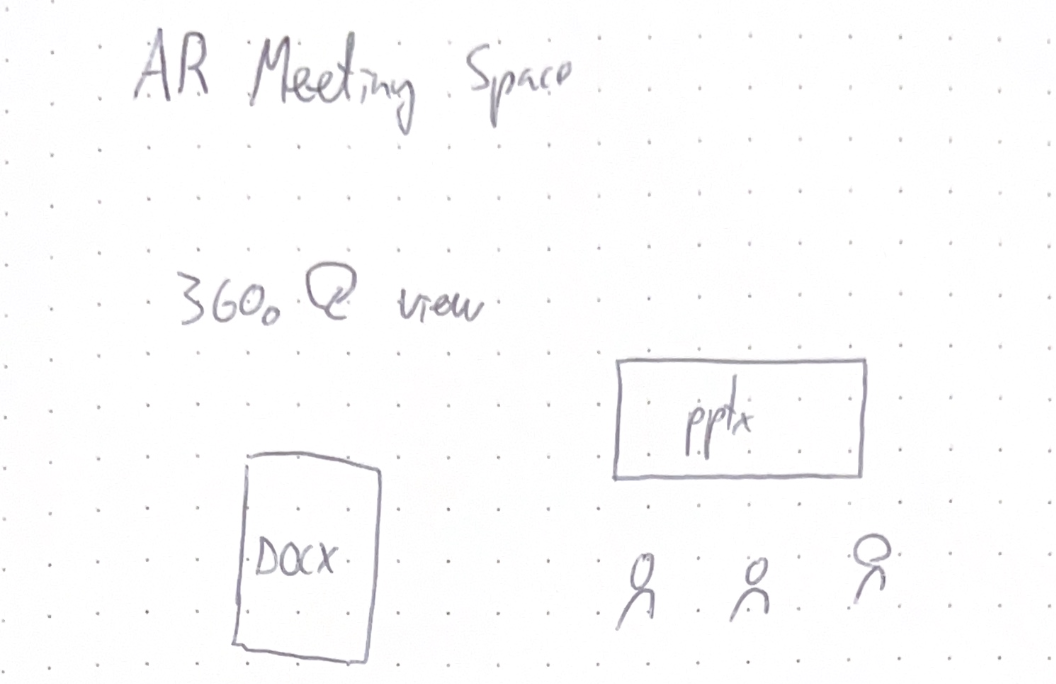 AR Meeting Space
360° view
pptx
DOCX